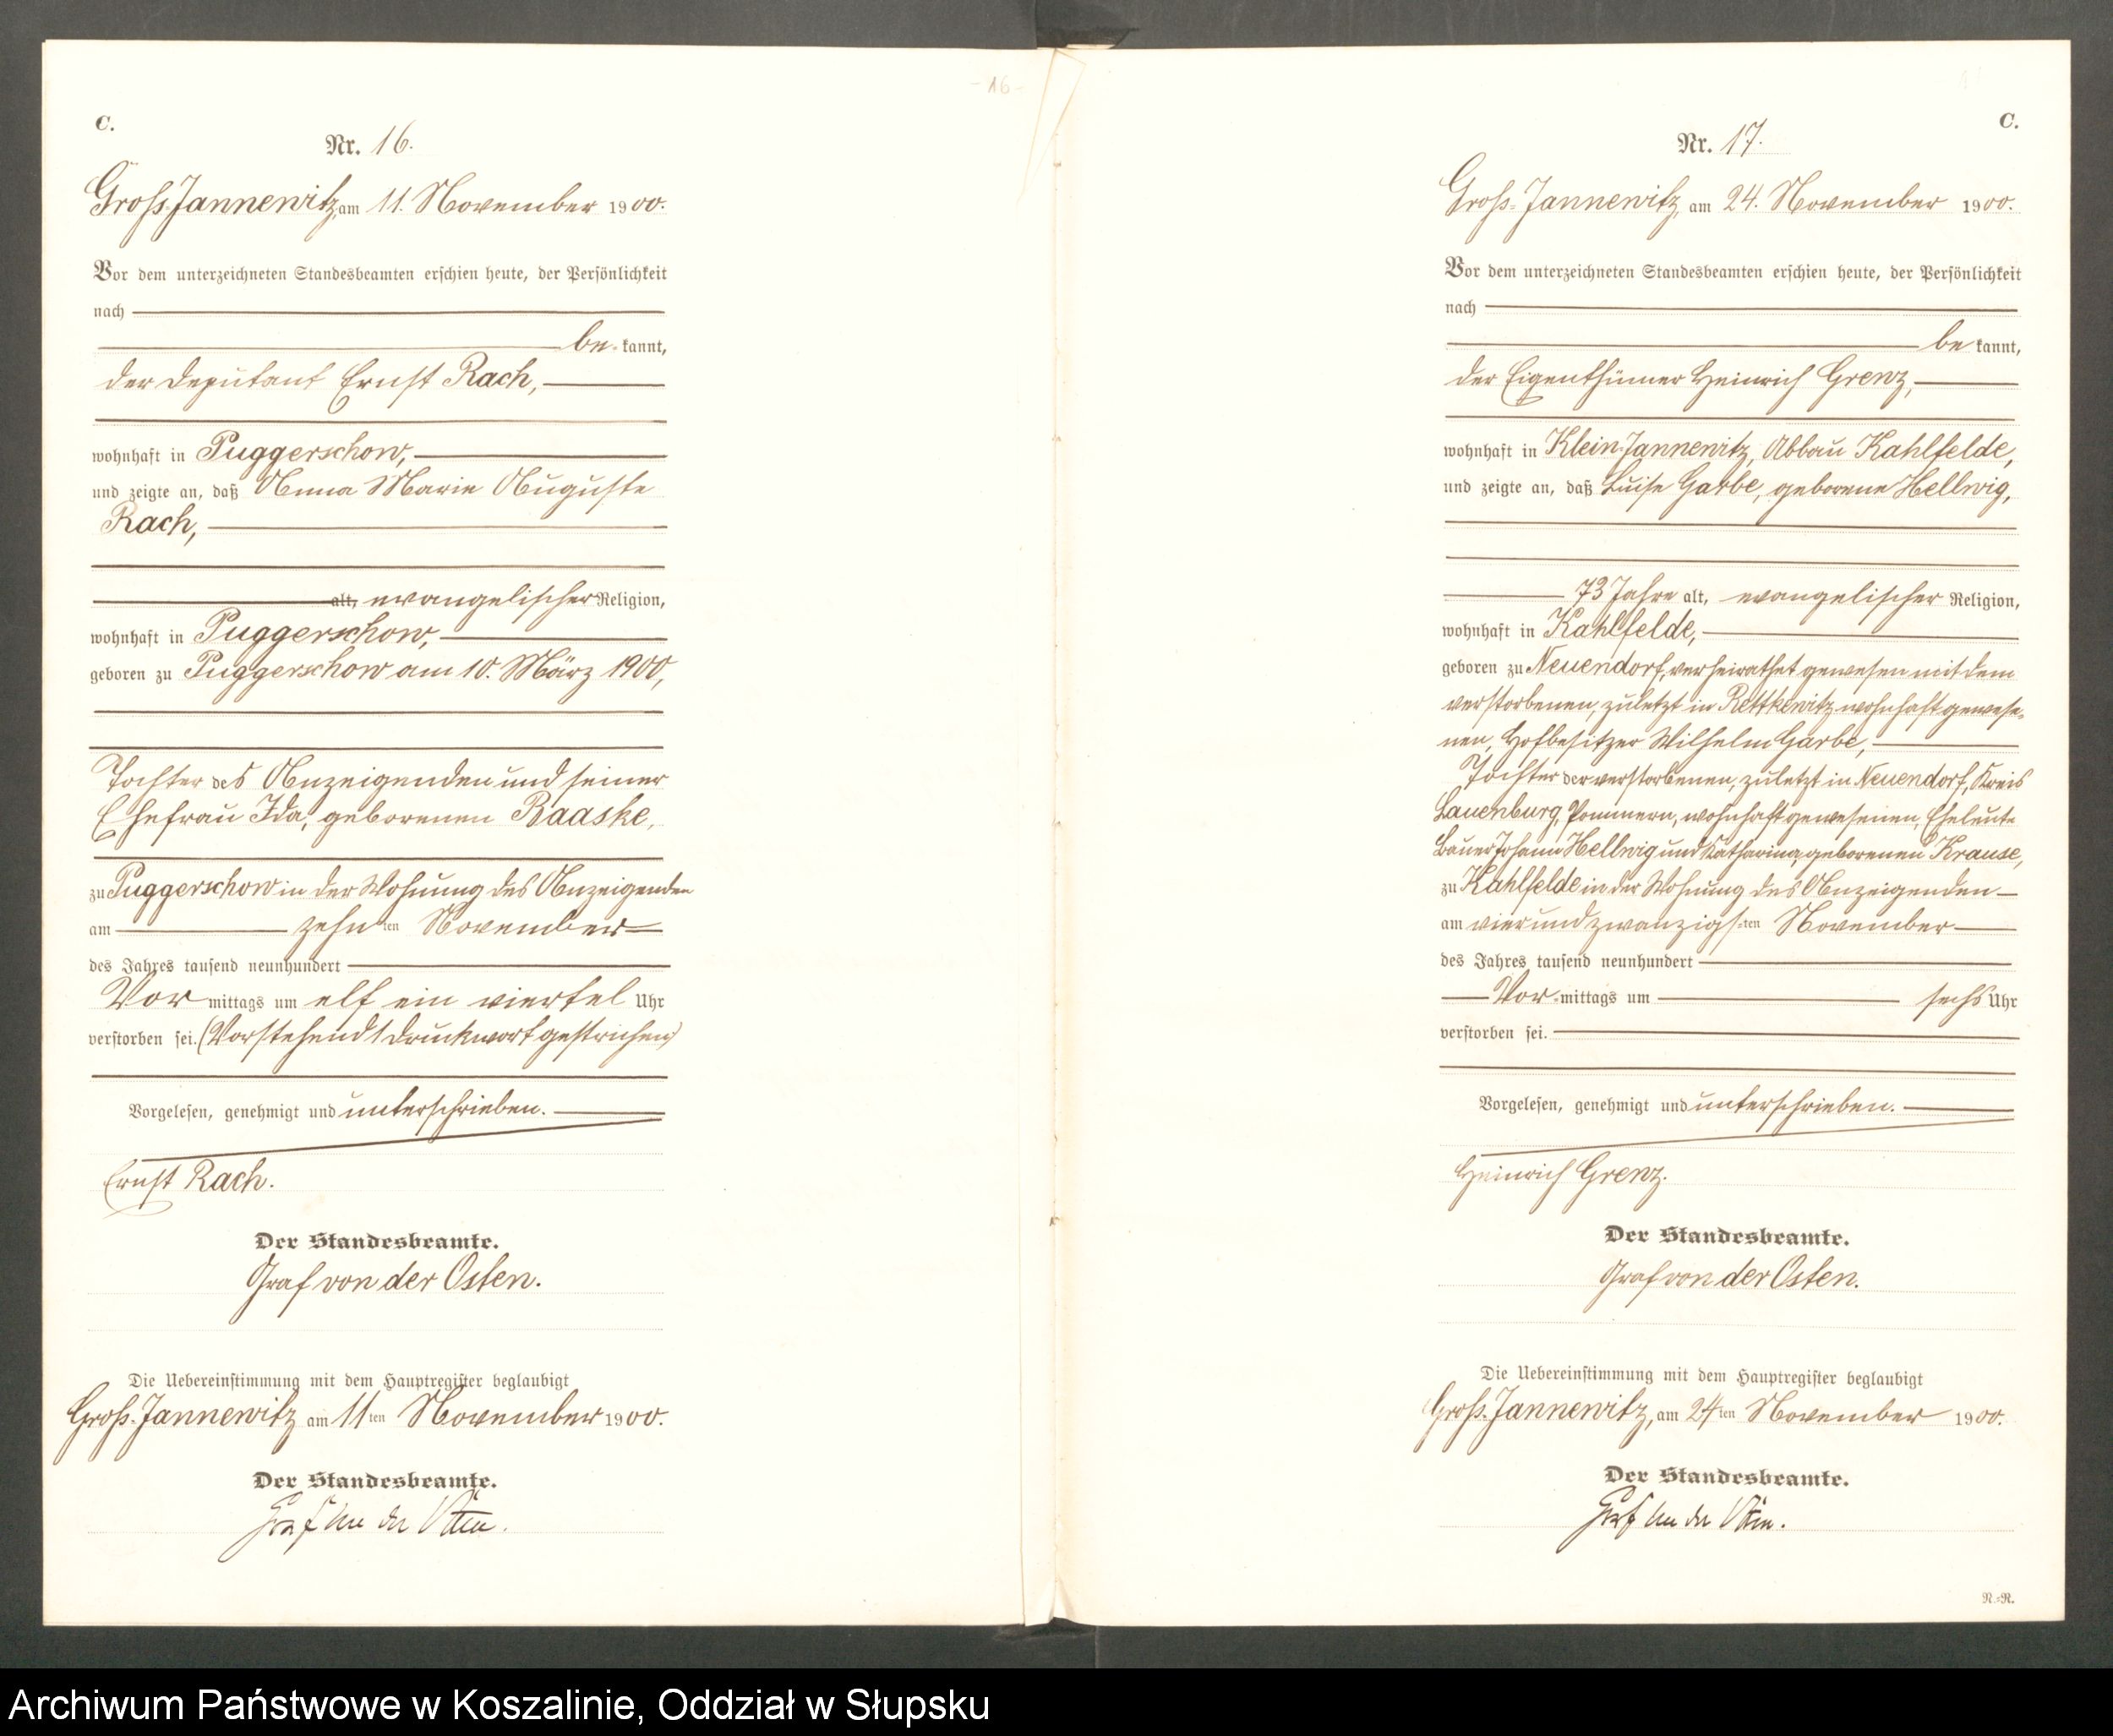 - 16 -
C.
Nr. 16.
Groß-Jannewitz am 11. November 1900.
Vor dem unterzeichneten Standesbeamten erschien heute, der Persönlichkeit
nach
be- kannt,
der Deputant Ernst Rach,
wohnhaft in Puggerschow,
und zeigte an, daß Anna Marie Auguste
Rach,
alt, evangelischer Religion,
wohnhaft in Puggerschow,
geboren zu Puggerschow am 10. März 1900,
Tochter des Anzeigenden und seiner
Ehefrau Ida, geborenen Baaske,
zu Puggerschow in der Wohnung des Anzeigenden
am zehnten November
des Jahres tausend neunhundert
Vor mittags um elf ein viertel Uhr
verstorben sei. (Vorstehend 1 Druckwort gestrichen)
Vorgelesen, genehmigt und unterschrieben.
Ernst Rach.
Der Standesbeamte.
Graf von der Osten.
Die Uebereinstimmung mit dem Hauptregister beglaubigt
Groß-Jannewitz am 11ten November 1900.
Der Standesbeamte.
Graf von der Osten.
C.
Nr. 17.
Groß-Jannewitz, am 24. November 1900.
Vor dem unterzeichneten Standesbeamten erschien heute, der Persönlichkeit
nach
be kannt,
der Eigenthümer Heinrich Grenz,
wohnhaft in Klein-Jannewitz, Abbau Kahlfelde,
und zeigte an, daß Luise Garbe, geborene Hellwig,
73 Jahre alt, evangelischer Religion,
wohnhaft in Kahlfelde,
geboren zu Neuendorf, verheirathet gewesen mit dem
verstorbenen, zuletzt in Rettkewitz wohnhaft gewese-
nen, Hofbesitzer Wilhelm Garbe,
Tochter der verstorbenen, zuletzt in Neuendorf, Kreis
Lauenburg, Pommern, wohnhaft gewesenen, Eheleute
Bauer Johann Hellwig und Katharina, geborenen Krause,
zu Kahlfelde in der Wohnung des Anzeigenden
am vierundzwanzigsten November
des Jahres tausend neunhundert
Vor-mittags um sechs Uhr
verstorben sei.
Vorgelesen, genehmigt und unterschrieben.
Heinrich Grenz.
Der Standesbeamte.
Graf von der Osten.
Die Uebereinstimmung mit dem Hauptregister beglaubigt
Groß-Jannewitz, am 24ten November 1900.
Der Standesbeamte.
Graf von der Osten.
N.=R.
Archiwum Państwowe w Koszalinie, Oddział w Słupsku